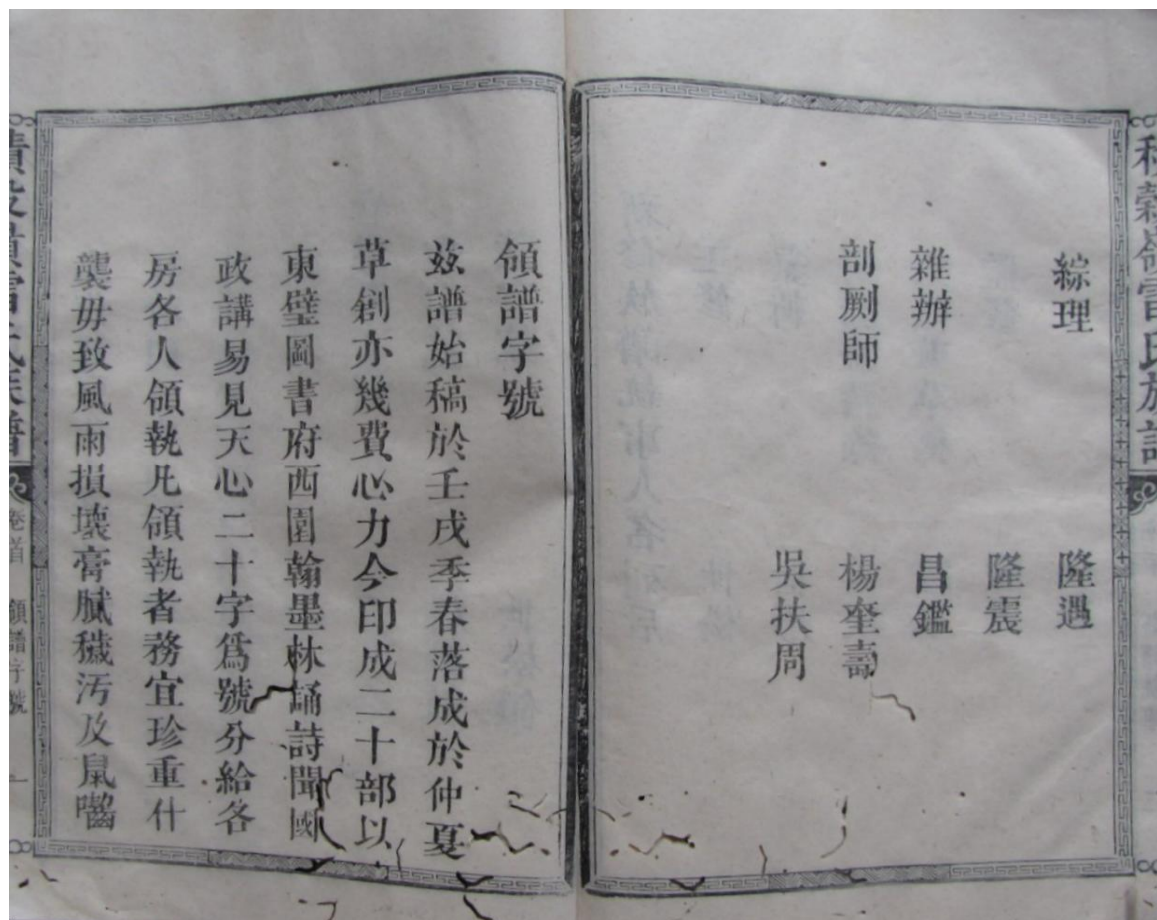 嶺雷氏族譜
綜理
隆遇
隆震
雜辦
昌鑑
剖劂師
楊奎壽
吳扶周
領譜字號
茲譜始稿於壬戌季春落成於仲夏
草創亦幾費心力今印成二十部以
東璧圖書府西園翰墨林誦詩聞國
政講易見天心二十字爲號分給各
房各人領執凡領執者務宜珍重什
襲毋致風雨損壞膏膩穢污及鼠嚙
嶺雷氏族譜
卷首
領譜字號
一